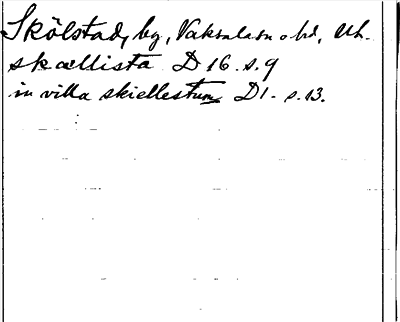 Skölstad, by, Vaksala sn o hd, Uh.
skællista D 16. s. 9
in villa skiellestum D1. s. 13.